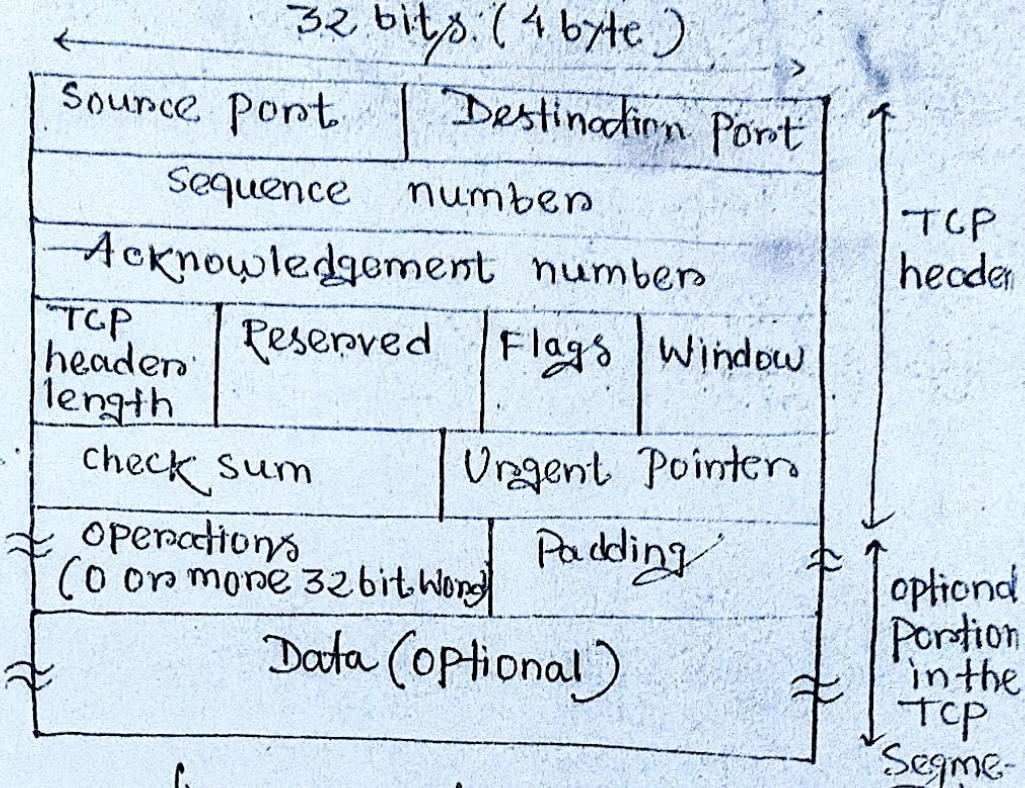 32 bits. (4 byte)
Source port Destination Port
Sequence number
Acknowledgement number
TCP header length Reserved Flags Window
Check sum Urgent Pointer
operations (0 or more 32 bit Word) Padding
Data (optional)
TCP
header
optional
Portion
in the
TCP
Segme-